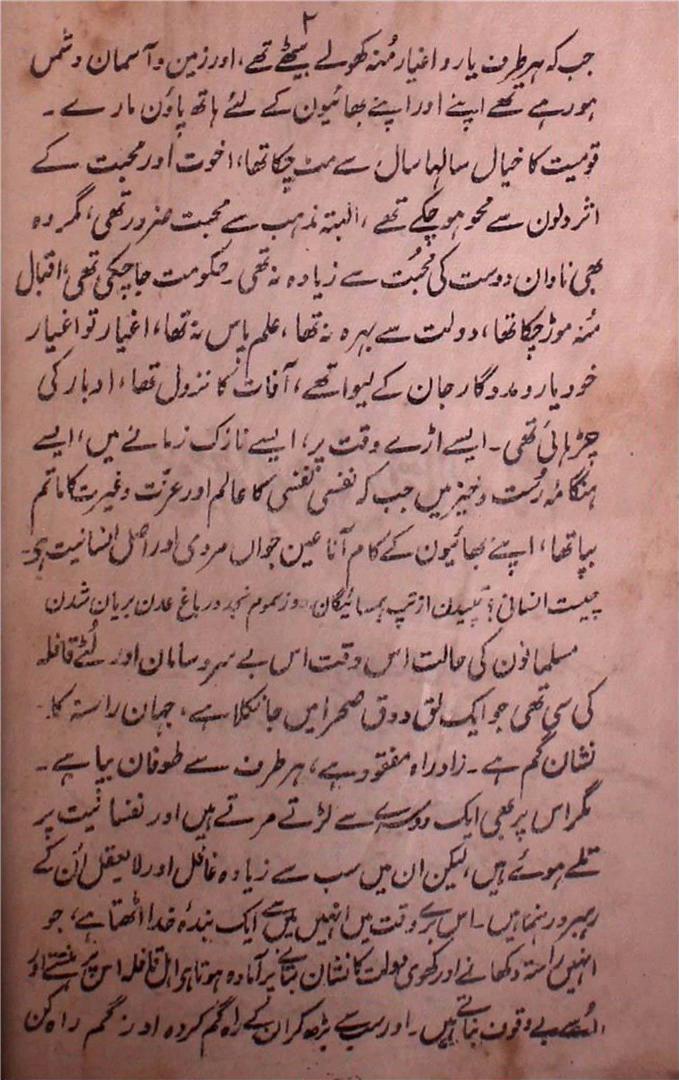 ۲
جب کہ ہر طرف یار و اغیار مُنہ کھولے بیٹھے تھے، اور زمین و آسمان دشمن
ہو رہے تھے اپنے اور اپنے بھائیون کے لئے ہاتھ پاؤن مارے ۔
قومیت کا خیال سالہا سال سے مٹ چکا تھا، اخوت اور محبت کے
اثر دلون سے محو ہو چکے تھے ، البتہ مذہب سے محبت ضرور تھی، مگر وہ
بھی نادان دوست کی محبُت سے زیادہ نہ تھی ۔ حکومت جا چکی تھی، اقبال
مُنہ موڑ چکا تھا، دولت سے بہرہ نہ تھا ، علم پاس نہ تھا، اغیار تو اغیار
خود یار و مددگار جان کے لیوا تھے ، آفات کا نزول تھا، ادبار کی
چڑہائی تھی ۔ ایسے اڑے وقت پر، ایسے نازک زمانے میں، ایسے
ہنگامہ رُست و خیز میں جب کہ نفسی نفسی کا عالم اور عزّت و غیرت کا ماتم
بپا تھا، اپنے بھائیون کے کام آنا عین جواں مردی اور اصل انسانیت ہو
چیست انسانی؟ تپیدن از تپِ ہمسائیگان از سموم نجد در باغ عدن بریان شدن
مسلمانون کی حالت اس وقت اس بے سروسامان اور لُٹے قافلہ
کی سی تھی جو ایک لق و دق صحرا میں جا نکلا ہے ، جہان راستہ کا
نشان گم ہے ۔ زاد راہ مفقود ہے، ہر طرف سے طوفان بپا ہے ۔
مگر اس پر بھی ایک دوسرے سے لڑتے مرتے ہیں اور نفسانیت پر
تلے ہوئے ہیں، لیکن ان میں سب سے زیادہ غافل اور لا یعقل اُن کے
رہبر و رہنما ہیں ۔ اس برے وقت میں انہیں میں سے ایک بندۂ خدا اٹھتا ہے، جو
انہیں راستہ دکھانے اور کھوی دولت کا نشان بتانے پر آمادہ ہوتا ہے اہل قافلہ اس پر ہنستے اور
اُسے بے وقوف بناتے ہیں ۔ اور سب سے بڑھ کر ان کے راہ گم کردہ اور گم راہ کن